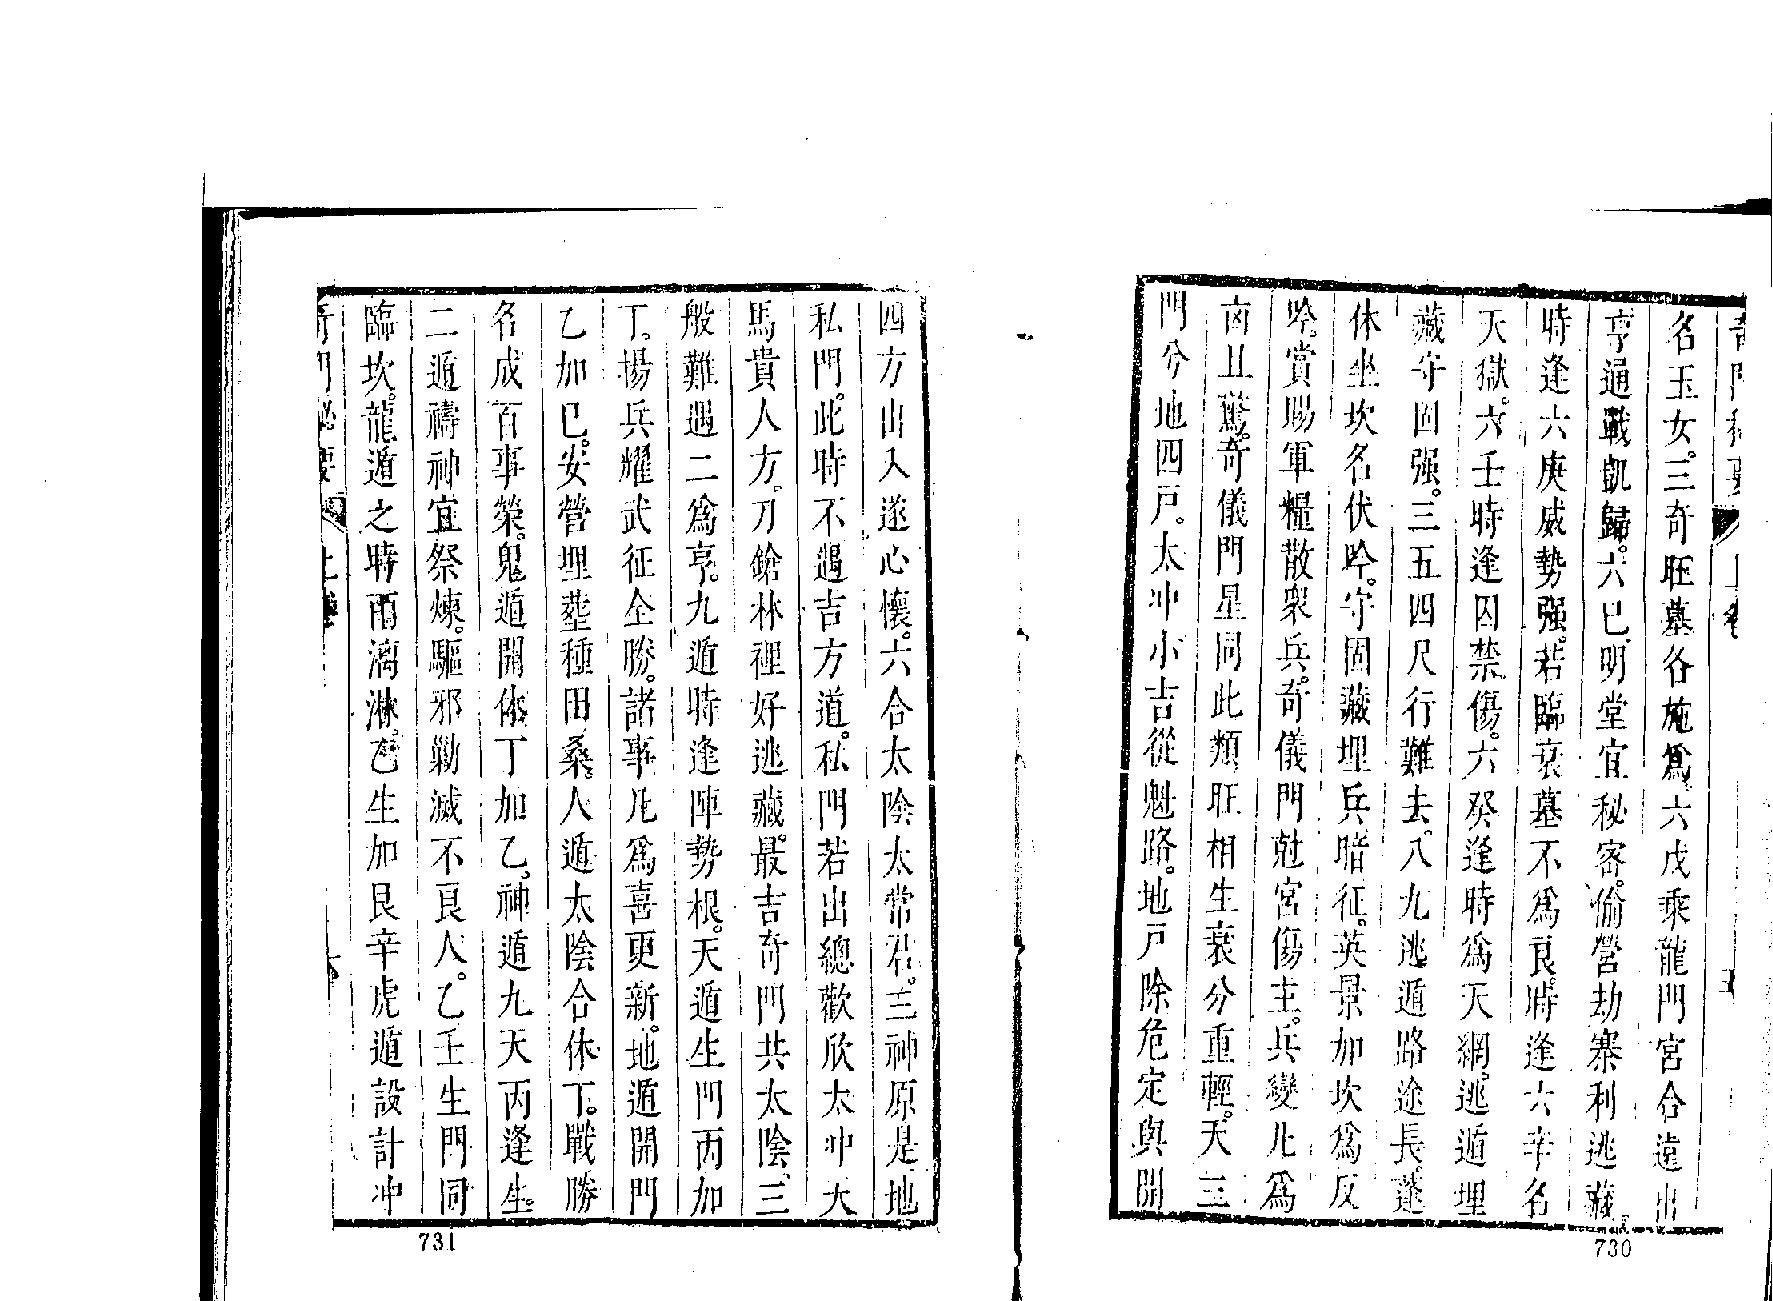 奇門秘要 上卷 五
名玉女。三奇旺墓各施爲。六戊乘龍門宮合遠出
亨通戰凱歸。六巳明堂宜秘密。偷營劫寨利逃藏
時逢六庚威勢强。若臨衰墓不爲良。時逢六辛名
天獄。六壬時逢囚禁傷。六癸逢時爲天網。逃遁埋
藏守固强。三五四尺行難去。八九逃遁路途長。蓬
休坐坎名伏吟。守固藏埋兵暗征。英景加坎爲反
吟。賞賜軍糧散衆兵。奇儀門尅宮傷主。兵變凡爲
凶且驚。奇儀門星同此類旺相生衰分重輕。天三
門分地四戸。太冲小吉從魁路。地戸除危定與開
730
四方出入遂心懷。六合太陰太常君。三神原是地
私門。此時不遇吉方道。私門若出總歡欣太冲天
馬貴人方。刀鎗林裡好逃藏。最吉奇門共太陰、三
般難遇二爲亨。九遁時逢陣勢根。天遁生門丙加
丁。揚兵耀武征全勝。諸事凡爲喜更新。地遁開門
乙加巳。安營埋塟種田桑。人遁太陰合休丁。戰勝
名成百事榮。鬼遁開休丁加乙。神遁九天丙逢生。
二遁禱神宜祭煉。驅邪勦滅不良人。乙壬生門同
臨坎。龍遁之時雨漓淋。乙生加艮辛虎遁設計冲
奇門秘要 上卷 六
731